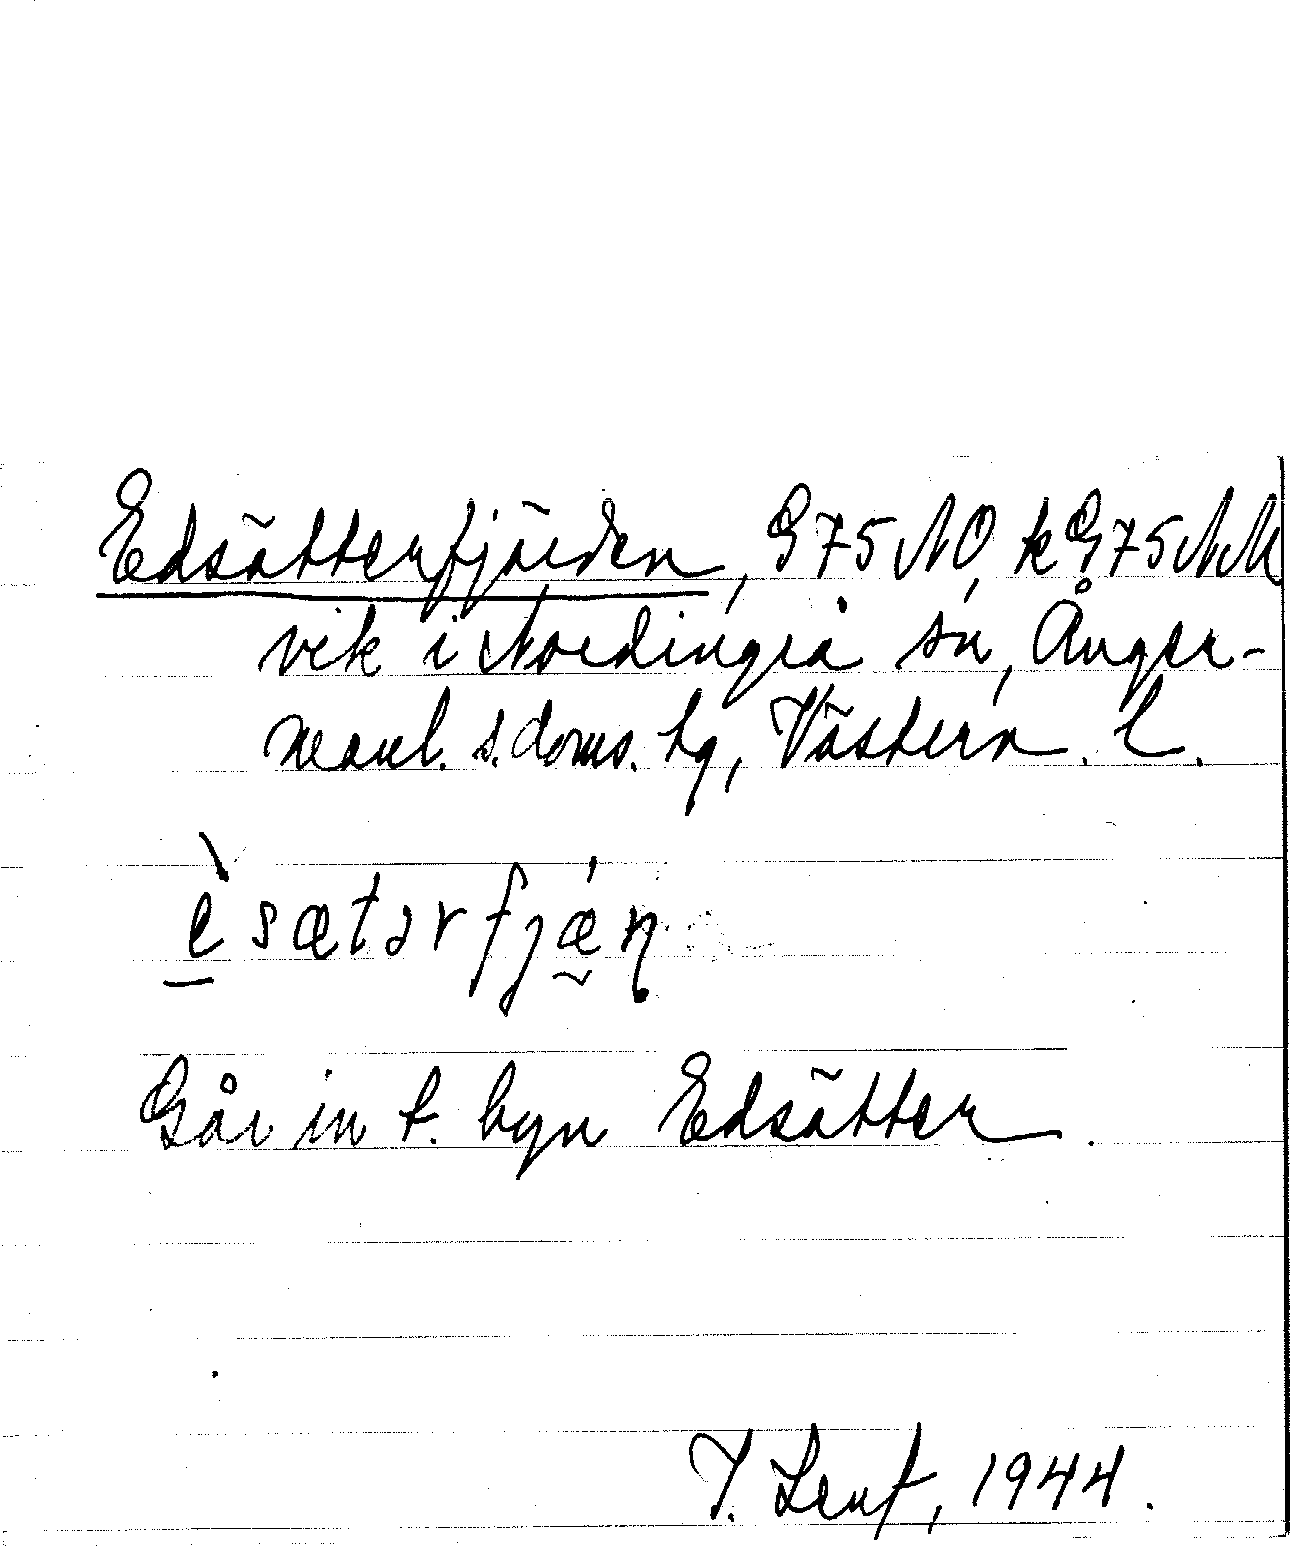 Edsätterfjärden, G75NO, k G75NM
vik i Nordingrå sn, Ånger-
manl. s. doms. tg, Västern. l.
è sætərfjǽṇ
Går in t. byn Edsätter.
1944.